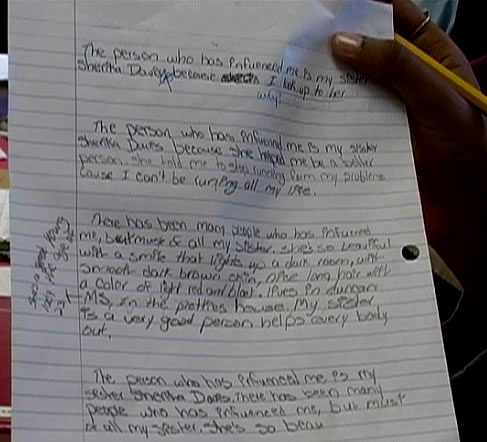 The person who has Influenced me Is my sister
Shertha Daves because I look up to her
why?
The person who has Influenced me Is my sister
Shertha Daves because she helped me be a better
person. She told me to stop runeling furm my problems
Cause I can't be runing all my life.
There has been many people who has Infuened
me, but must of all my sister. she's so beautiful
with a smile that lights up a dark room, with
smooth dark brown skin, nice long hair with
a color of light red and black. lives in durrant
MS, In the pretties house. My sister
Is a very good person helps every body
out.
The person who has Infuenced me Is my
sister Shertha Daves. There has been many
people who has Infuenced me, but must
of all my sister. she's so beau